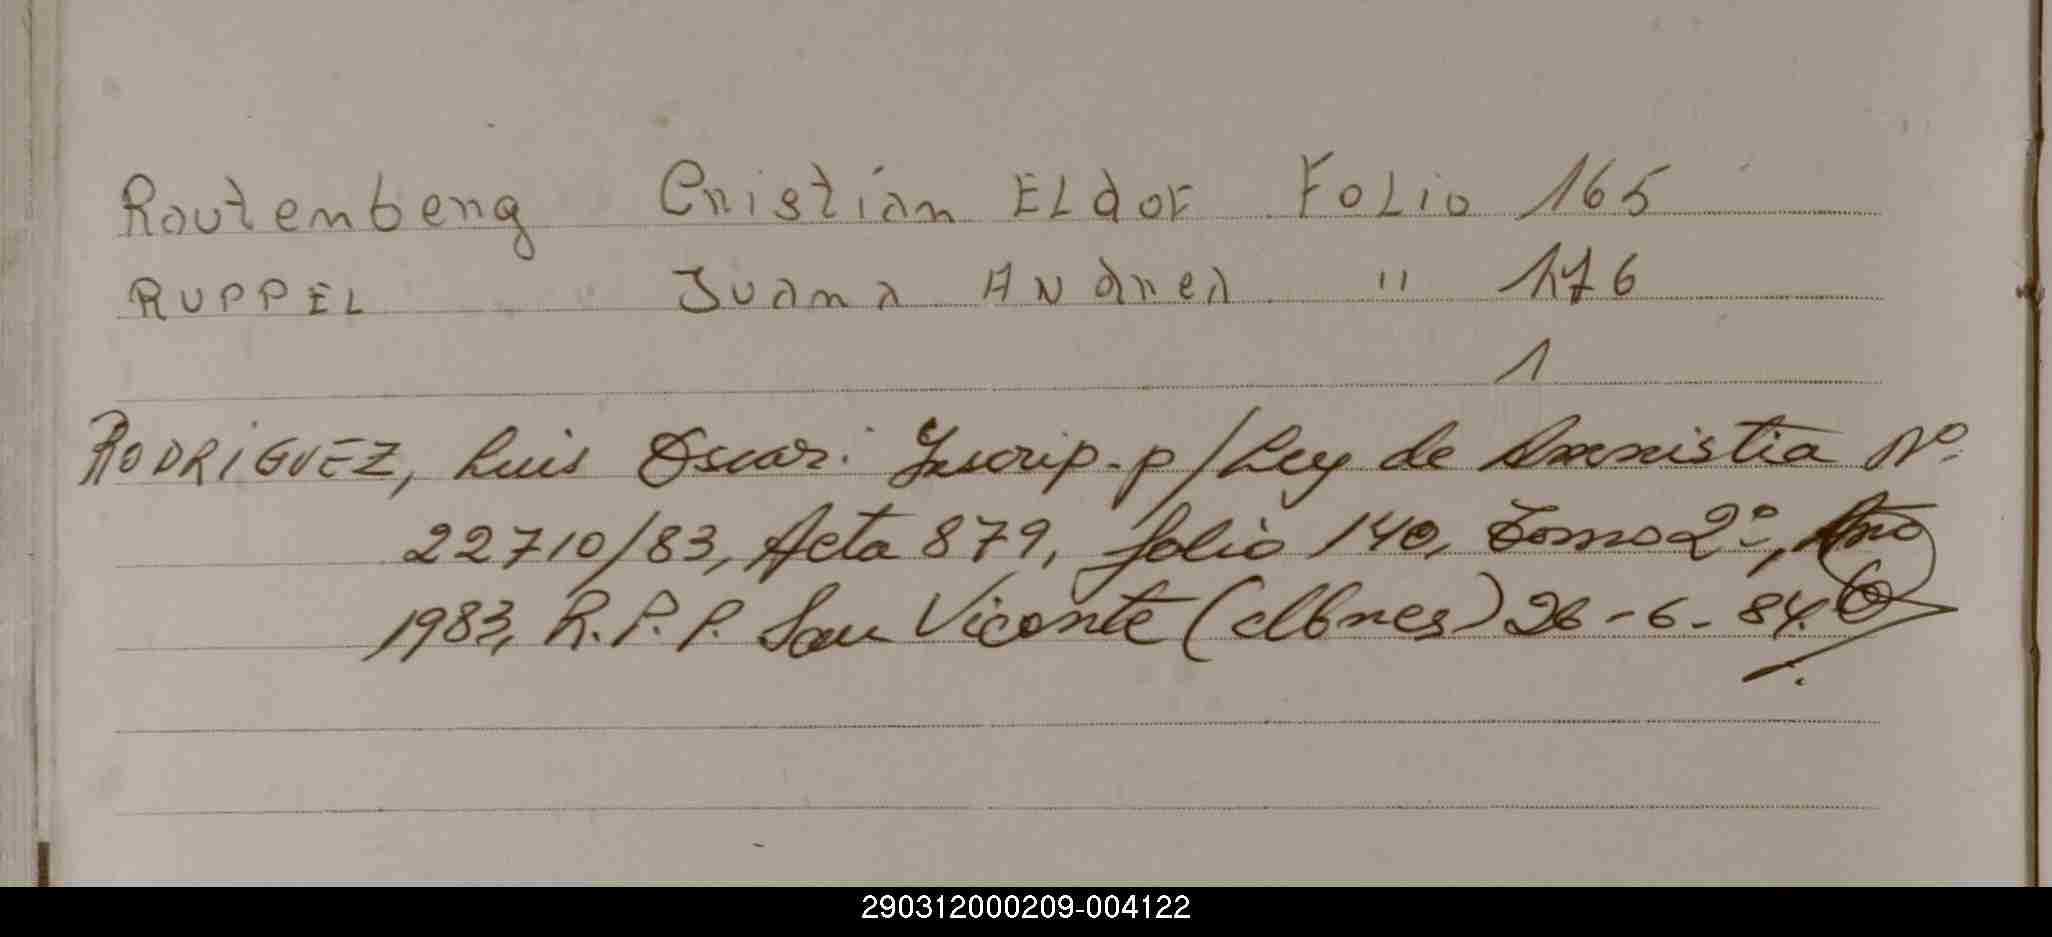 Rautenberg Cristian ELdor FoLio 165
RUPPEL Juana ANdrea " 176
1
RODRIGUEZ, Luis Oscar: Inscrip. p/Ley de Amnistia Nº
22710/83, Acta 879, folio 140, Tomo 2º, Año
1983, R.P.P. San Vicente (Mnes) 26-6-84.
290312000209-004122